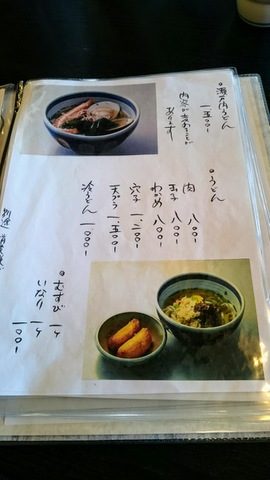 瀬戸内うどん
一、五〇〇ー
内容が変わることが
あります
うどん
肉 八〇〇ー
玉子 八〇〇ー
わかめ 八〇〇ー
穴子 一、二〇〇ー
天プラ 一、五〇〇ー
冷うどん 一〇〇〇ー
むすび 一ケ
いなり 一ケ
一〇〇ー
別途